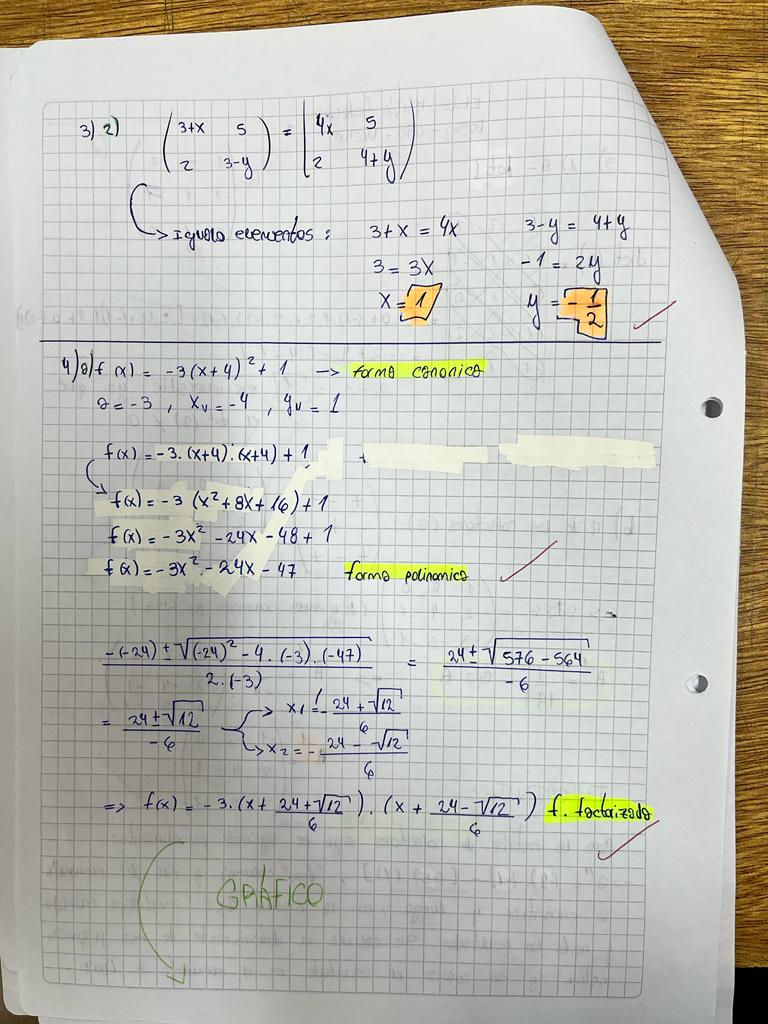 3) 2) (3+x 5 = |4x 5
2 3-y) 2 4+y)
→ Igualo elementos: 3+x = 4x 3-y = 4+y
3 = 3x -1 = 2y
x = 1 y = -1/2
4) a) f(x) = -3(x+4)² + 1 → forma canonica
a = -3, Xv = -4, yv = 1
f(x) = -3.(x+4).(x+4) + 1 +
f(x) = -3 (x²+8x+16) + 1
f(x) = -3x² - 24x - 48 + 1
f(x) = -3x² - 24x - 47 forma polinomica
-(-24) ± √(-24)² - 4.(-3).(-47) / 2.(-3) = 24 ± √576 - 564 / -6
= 24 ± √12 / -6 → x1 = - 24 + √12 / 6
→ x2 = - 24 - √12 / 6
=> f(x) = -3.(x + 24+√12 / 6).(x + 24-√12 / 6) f. factorizada
GRÁFICO